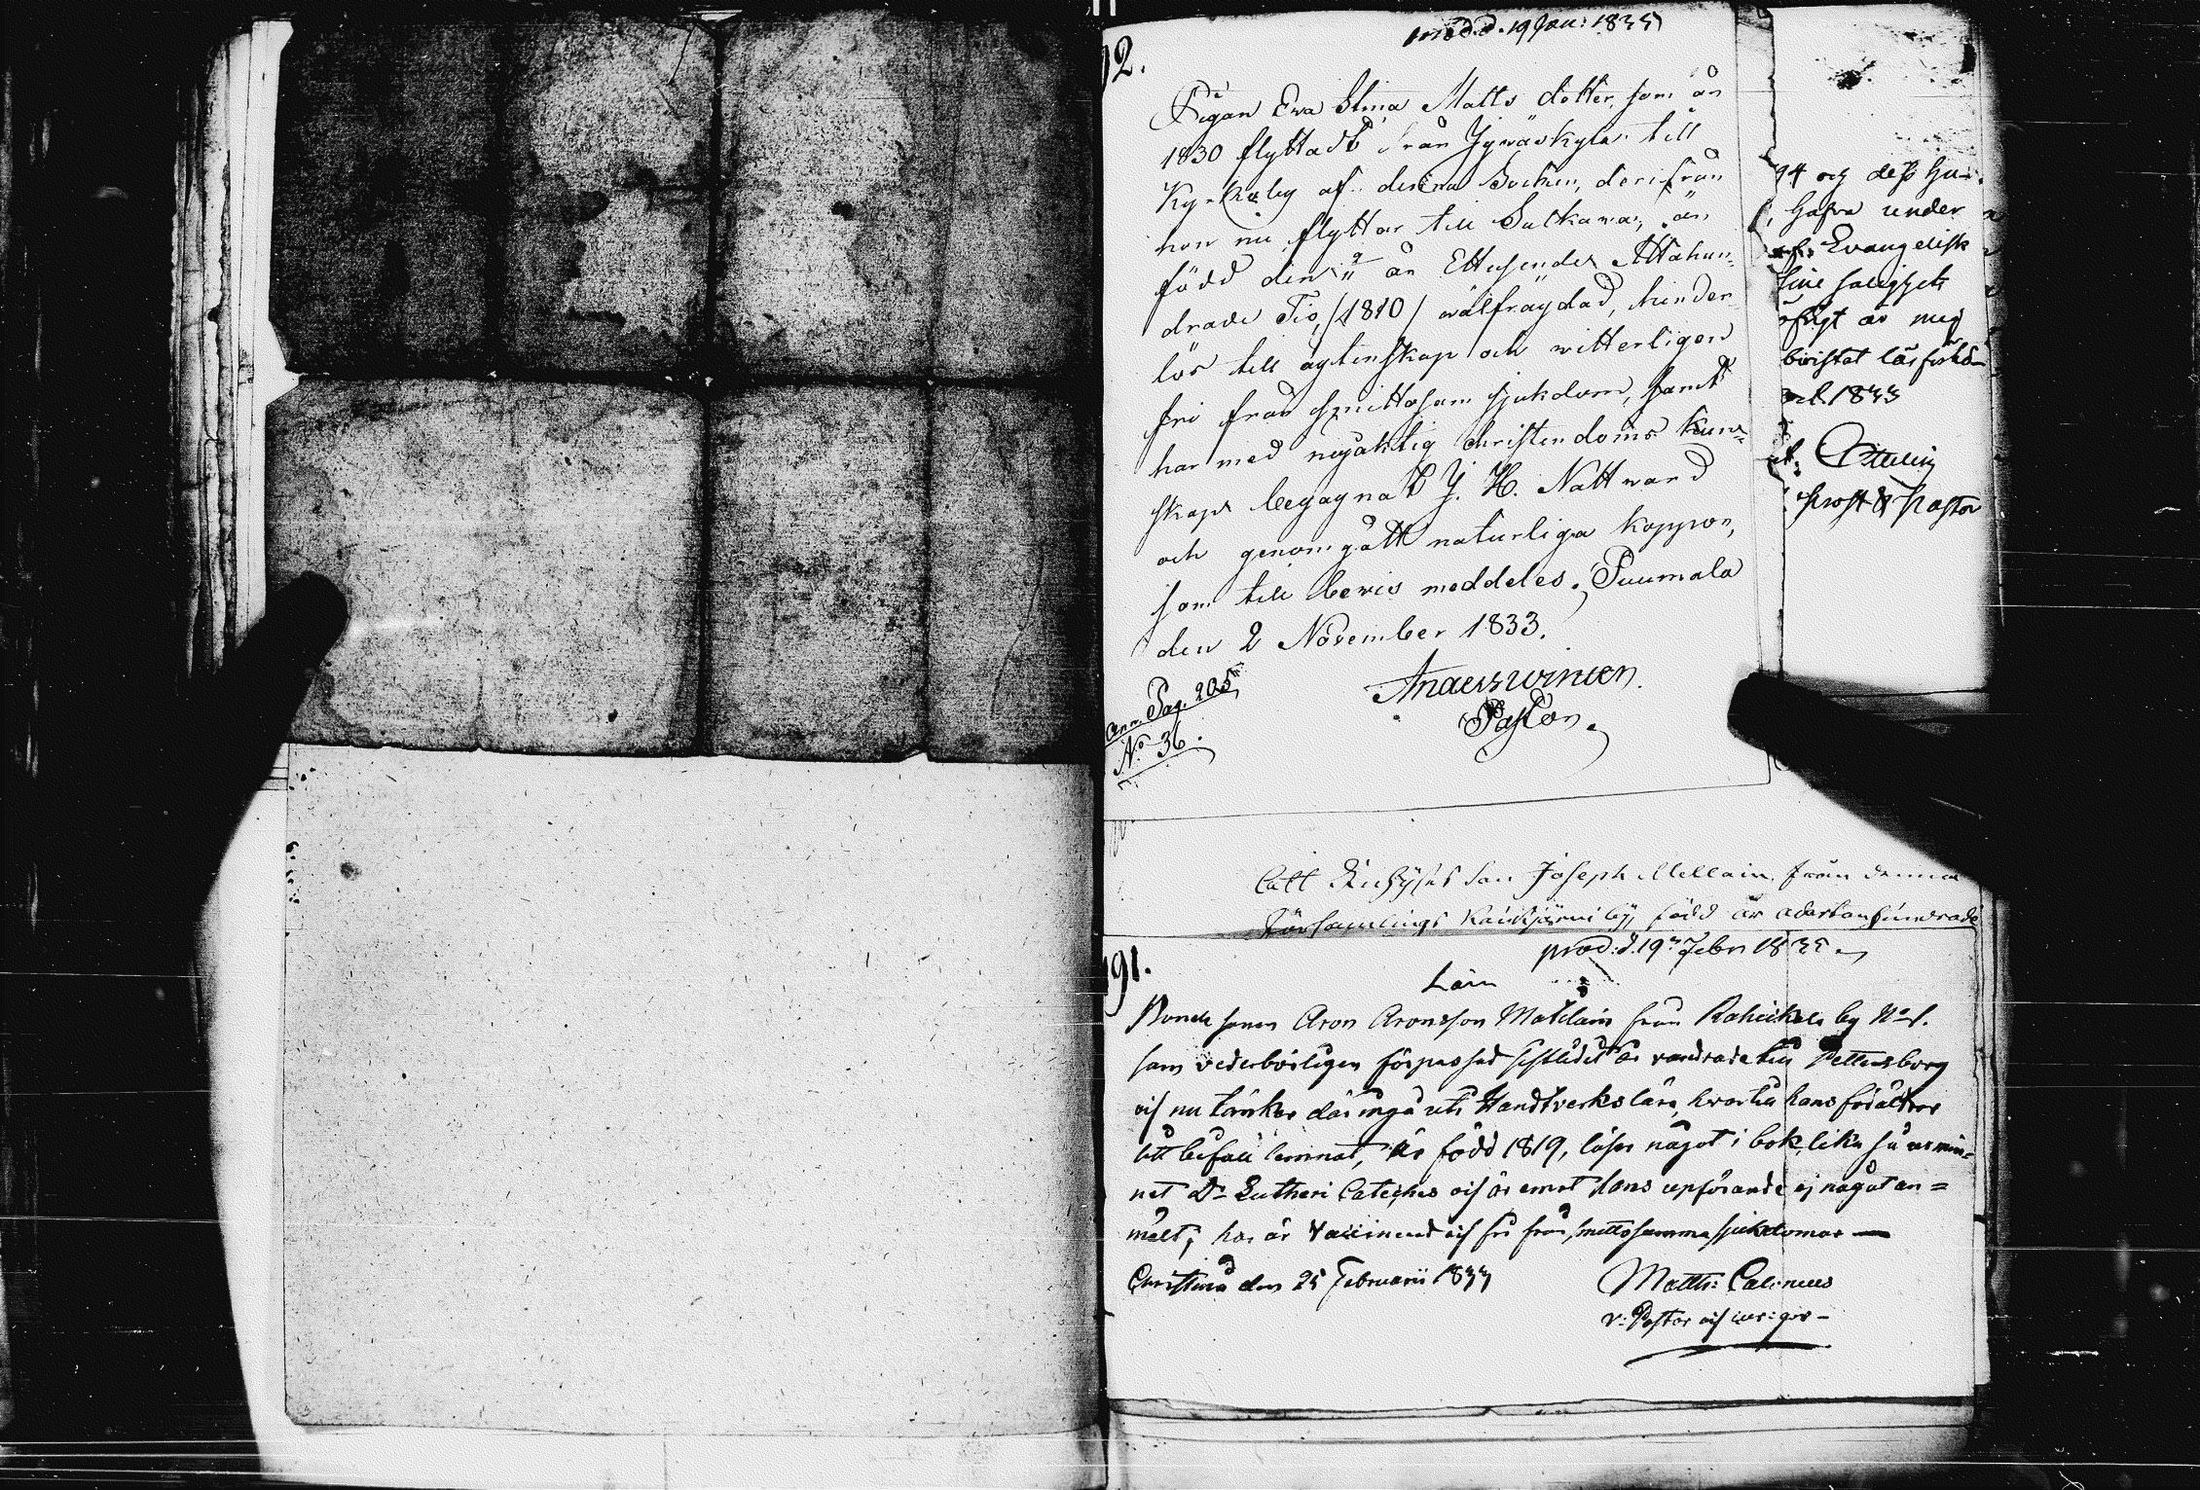 prod. d. 19 Jan: 1835
92.
Pigan Eva Stina Matts dotter, som år
1830 flyttadt från Jywäskylä till
Kyrkoby af denna Socken, derifrån
hon nu flyttar till Sulkawa, är
född den " år Ettusende Åttahun=
drade Tio, /1810/ wälfräydad, hinder
lös till ägtenskap och witterligen
fri från smittosam sjukdom, samt
har med nöjaktig christendoms kun=
skap begagnat H. H. Nattward
och genomgått naturliga koppor,
som till bewis meddeles. Puumala
den 2 November 1833.
Pastor.
Ann. Pag. 205
No 36.
94 och dess
hafva under
Evangelisk
öfrigt är mig
bevistat läsförhör
1833
Prost & Pastor
Att Joseph Mellain från denna
Församlings by, född år adertonhundrade
191.
prod: d. 19 Febr 1835
Län
Bonde sonen Aron Aronsson från by No 1.
som vederbörligen förpassad sistledit år vandrade till Pettersborg
och nu tänker där ingå uti Handtverks lära, hvartill hans föräldrar
sitt bifall lemnat, är född 1819, läser något i bok, lika så ur min=
net Dr Lutheri Cateches och är emot hans upförande ej något an=
mält; han är Vaccinerad och fri från smittosamma sjukdomar —
Christina den 25 Februarii 1833
Matth: Calonius
v: Pastor